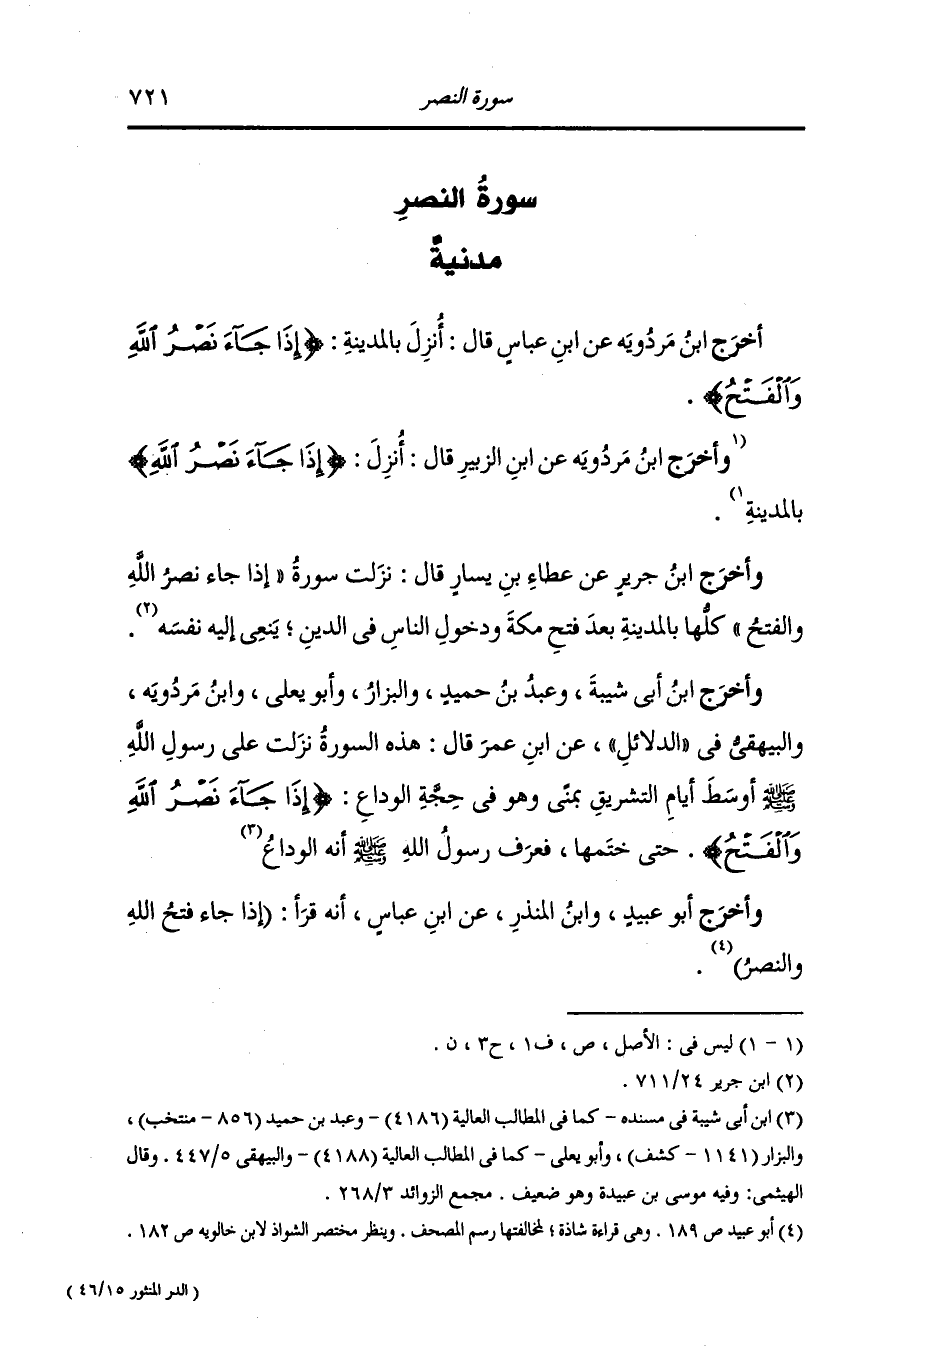 سورة النصر ٧٢١
سورةُ النصرِ
مدنيةٌ
أخرَج ابنُ مَردُويَه عن ابنِ عباسٍ قال : أُنزِلَ بالمدينةِ : ﴿إِذَا جَآءَ نَصْرُ ٱللَّهِ
وَٱلْفَتْحُ﴾ .
(١وأخرَج ابنُ مَردُويَه عن ابنِ الزبيرِ قال : أُنزِلَ : ﴿إِذَا جَآءَ نَصْرُ ٱللَّهِ﴾
بالمدينةِ١) .
وأخرَج ابنُ جريرٍ عن عطاءِ بنِ يسارٍ قال : نزَلت سورةُ « إذا جاء نصرُ اللَّهِ
والفتحُ » كلُّها بالمدينةِ بعدَ فتحِ مكةَ ودخولِ الناسِ فى الدينِ ؛ يَنعِى إليه نفسَه(٢) .
وأخرَج ابنُ أبى شيبةَ ، وعبدُ بنُ حميدٍ ، والبزارُ ، وأبو يعلى ، وابنُ مَردُويَه ،
والبيهقىُّ فى «الدلائلِ» ، عن ابنِ عمرَ قال : هذه السورةُ نزَلت على رسولِ اللَّهِ
ﷺ أوسَطَ أيامِ التشريقِ بمنًى وهو فى حجَّةِ الوداعِ : ﴿إِذَا جَآءَ نَصْرُ ٱللَّهِ
وَٱلْفَتْحُ﴾ . حتى ختَمها ، فعرَف رسولُ اللهِ ﷺ أنه الوداعُ(٣)
وأخرَج أبو عبيدٍ ، وابنُ المنذرِ ، عن ابنِ عباسٍ ، أنه قرَأ : (إذا جاء فتحُ اللهِ
والنصرُ)(٤) .
(١ - ١) ليس فى : الأصل ، ص ، ف١ ، ح٣ ، ن .
(٢) ابن جرير ٧١١/٢٤ .
(٣) ابن أبى شيبة فى مسنده - كما فى المطالب العالية (٤١٨٦) - وعبد بن حميد (٨٥٦ - منتخب) ،
والبزار (١١٤١ - كشف) ، وأبو يعلى - كما فى المطالب العالية (٤١٨٨) - والبيهقى ٤٤٧/٥ . وقال
الهيثمى: وفيه موسى بن عبيدة وهو ضعيف . مجمع الزوائد ٢٦٨/٣ .
(٤) أبو عبيد ص ١٨٩ . وهى قراءة شاذة ؛ لمخالفتها رسم المصحف . وينظر مختصر الشواذ لابن خالويه ص ١٨٢ .
( الدر المنثور ٤٦/١٥ )